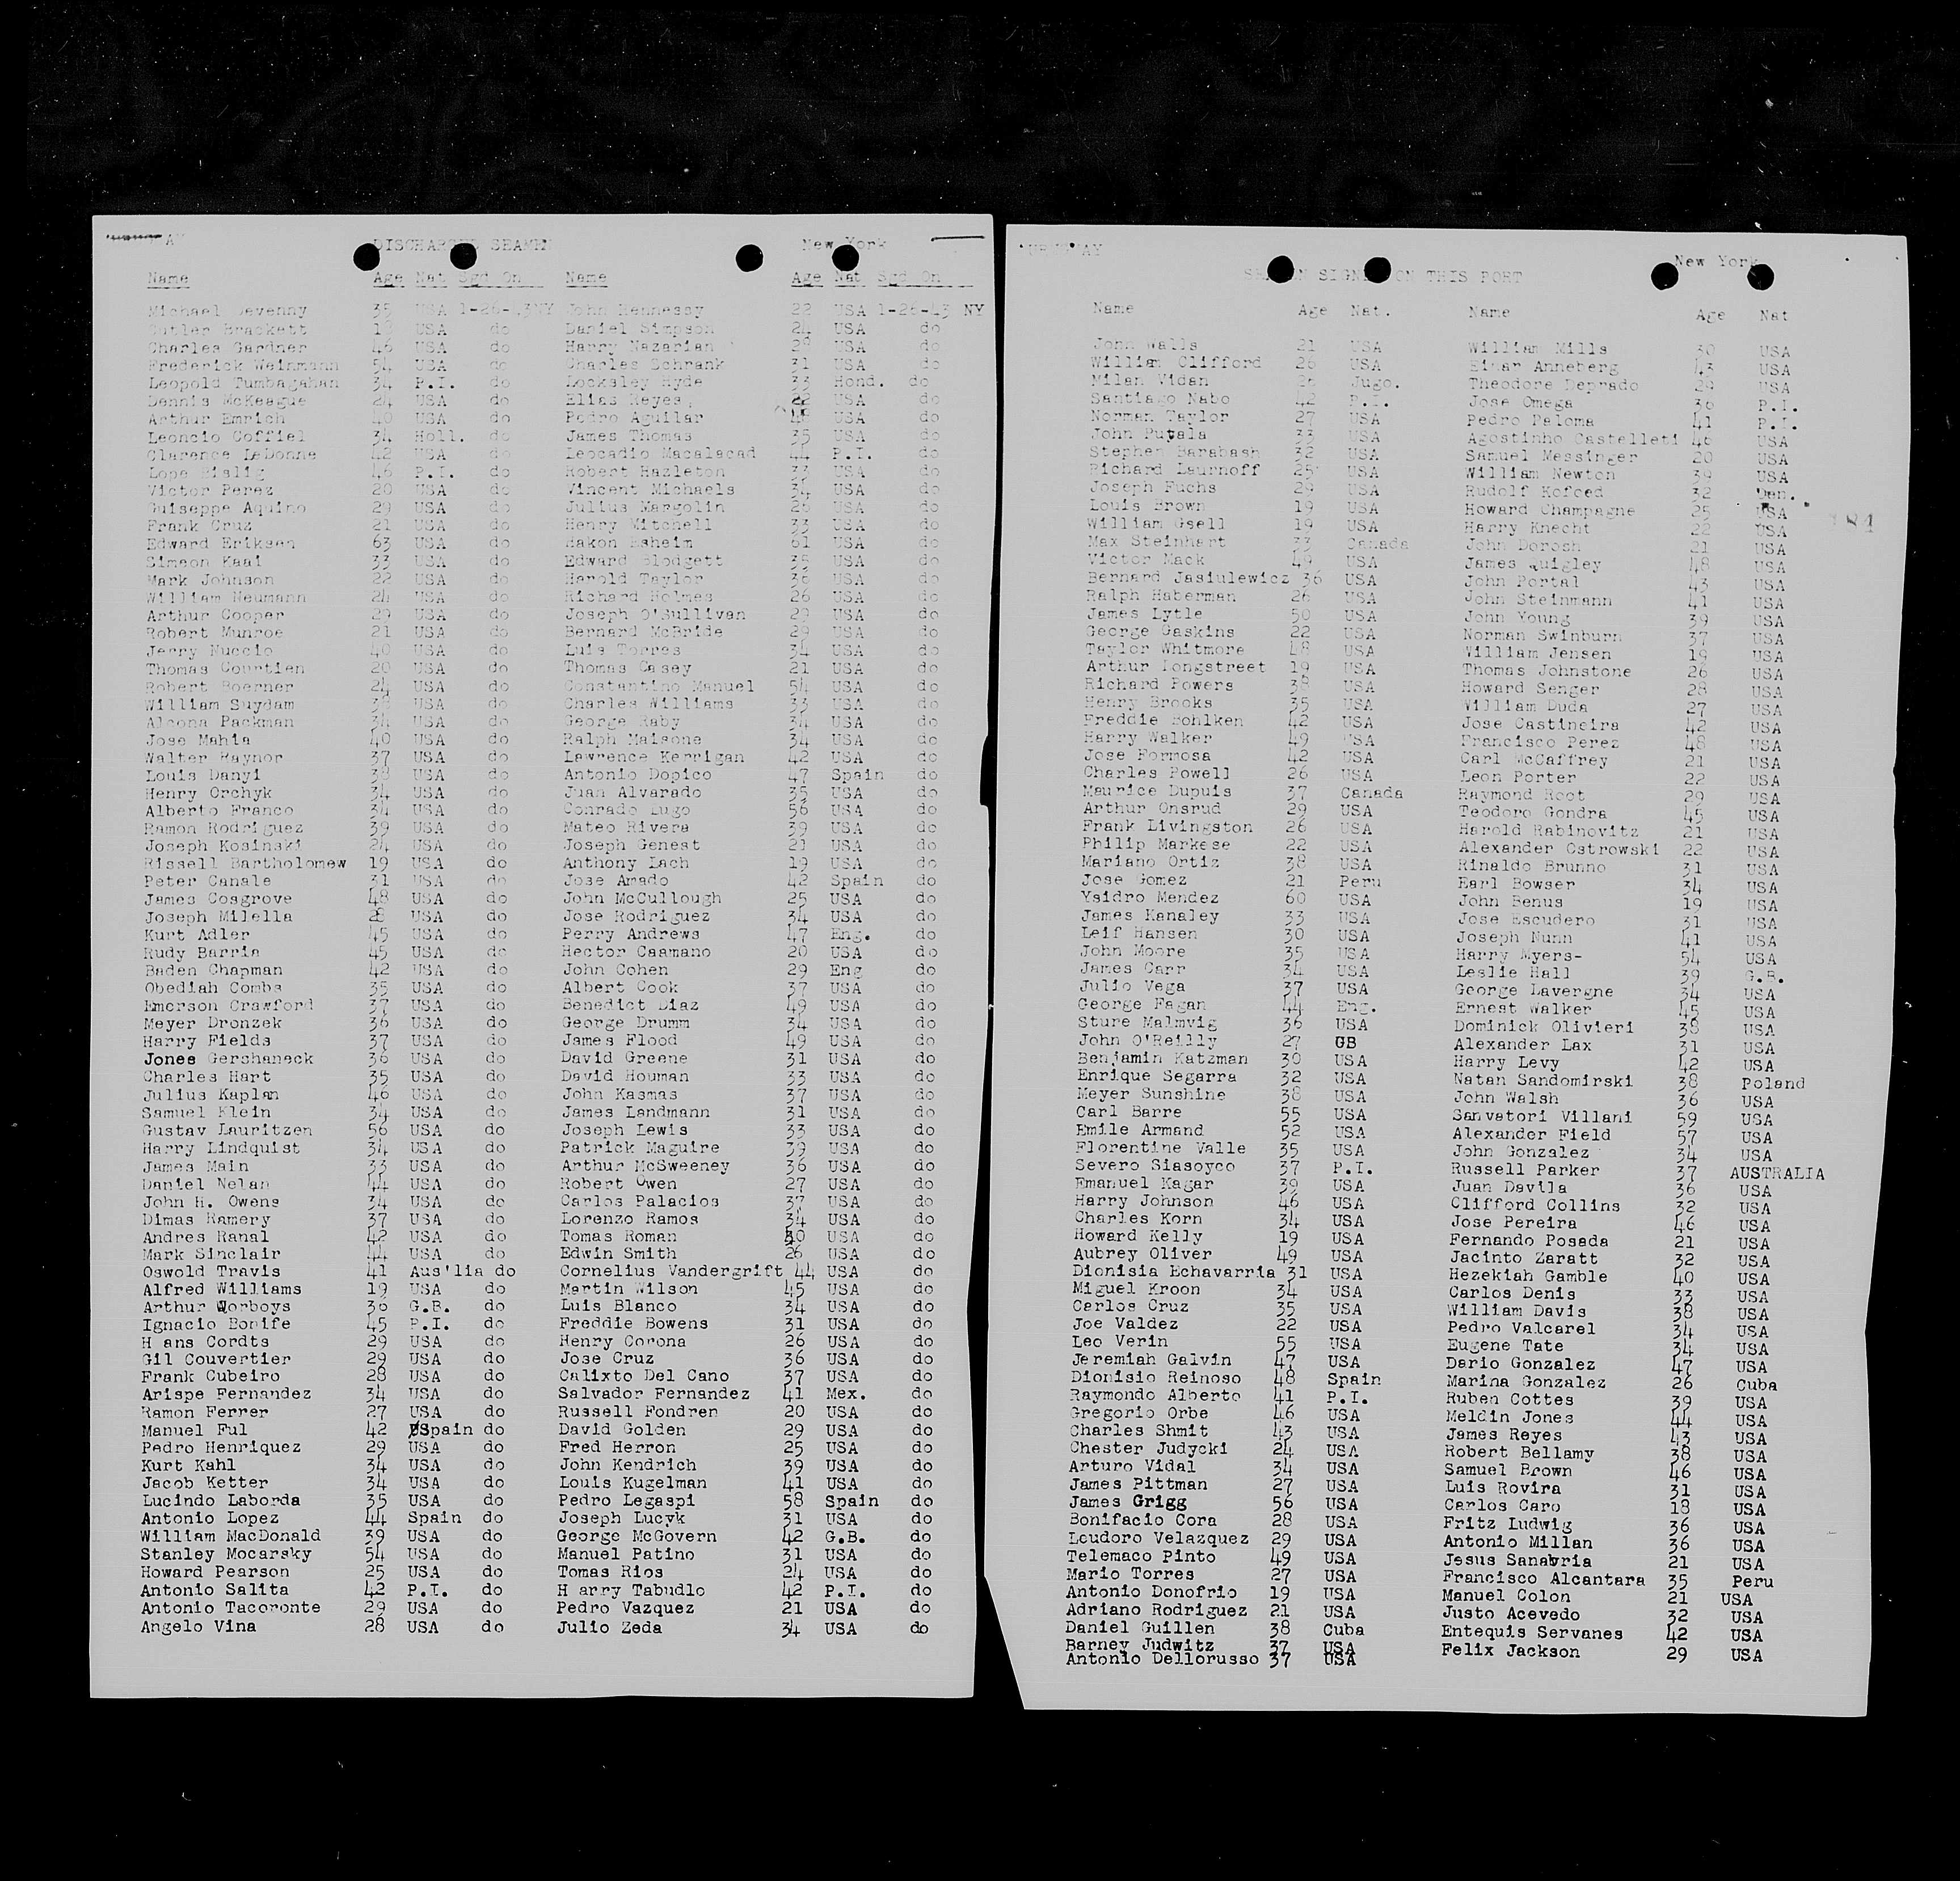 DISCHARGED SEAMEN New York
Name Age Nat Sgd On Name Age Nat Sgd On
Michael Devenny 35 USA 1-26-43NY John Hennessy 22 USA 1-26-43 NY
Butler Brackett USA do Daniel Simpson 24 USA do
Charles Gardner 46 USA do Harry Nazarian USA do
Frederick Weinmann 54 USA do Charles Schrank 31 USA do
Leopold Tumbagahan 34 P.I. do Locksley Hyde 33 Hond. do
Dennis McKeague 24 USA do Elias Reyes 22 USA do
Arthur Emrich 40 USA do Pedro Aguilar USA do
Leoncio Coffiel 34 Holl. do James Thomas 35 USA do
Clarence LeDonne 42 USA do Leocadio Macalacad 44 P.I. do
Lope Eislig 46 P.I. do Robert Hazleton 33 USA do
Victor Perez 20 USA do Vincent Michaels 34 USA do
Guiseppe Aquino 29 USA do Julius Margolin 26 USA do
Frank Cruz 21 USA do Henry Mitchell 33 USA do
Edward Eriksen 63 USA do Hakon Esheim 61 USA do
Simeon Kaai 33 USA do Edward Blodgett 35 USA do
Mark Johnson 22 USA do Harold Taylor 36 USA do
William Neumann 24 USA do Richard Holmes 26 USA do
Arthur Cooper 29 USA do Joseph O'Sullivan 29 USA do
Robert Munroe 21 USA do Bernard McBride 29 USA do
Jerry Nuccio 40 USA do Luis Torres 34 USA do
Thomas Courtien 20 USA do Thomas Casey 21 USA do
Robert Boerner 24 USA do Constantino Manuel 54 USA do
William Suydam 38 USA do Charles Williams 33 USA do
Alcona Packman 34 USA do George Raby 34 USA do
Jose Mahia 40 USA do Ralph Maisone 34 USA do
Walter Raynor 37 USA do Lawrence Kerrigan 42 USA do
Louis Danyi 38 USA do Antonio Dopico 47 Spain do
Henry Orchyk 34 USA do Juan Alvarado 35 USA do
Alberto Franco 34 USA do Conrado Lugo 56 USA do
Ramon Rodriguez 39 USA do Mateo Rivera 39 USA do
Joseph Kosinski 24 USA do Joseph Genest 21 USA do
Rissell Bartholomew 19 USA do Anthony Lach 19 USA do
Peter Canale 31 USA do Jose Amado 42 Spain do
James Cosgrove 48 USA do John McCullough 25 USA do
Joseph Milella 28 USA do Jose Rodriguez 34 USA do
Kurt Adler 45 USA do Perry Andrews 47 Eng. do
Rudy Barria 45 USA do Hector Caamano 20 USA do
Baden Chapman 42 USA do John Cohen 29 Eng do
Obediah Combs 35 USA do Albert Cook 37 USA do
Emerson Crawford 37 USA do Benedict Diaz 49 USA do
Meyer Dronzek 36 USA do George Drumm 34 USA do
Harry Fields 37 USA do James Flood 49 USA do
Jones Gershaneck 36 USA do David Greene 31 USA do
Charles Hart 35 USA do David Houman 33 USA do
Julius Kaplan 46 USA do John Kasmas 37 USA do
Samuel Klein 34 USA do James Landmann 31 USA do
Gustav Lauritzen 56 USA do Joseph Lewis 33 USA do
Harry Lindquist 34 USA do Patrick Maguire 39 USA do
James Main 33 USA do Arthur McSweeney 36 USA do
Daniel Nelan 44 USA do Robert Owen 27 USA do
John H. Owens 34 USA do Carlos Palacios 37 USA do
Dimas Ramery 37 USA do Lorenzo Ramos 34 USA do
Andres Ranal 42 USA do Tomas Roman 40 USA do
Mark Sinclair 44 USA do Edwin Smith 26 USA do
Oswold Travis 41 Aus'lia do Cornelius Vandergrift 44 USA do
Alfred Williams 19 USA do Martin Wilson 45 USA do
Arthur Worboys 36 G.B. do Luis Blanco 34 USA do
Ignacio Bonife 45 P.I. do Freddie Bowens 31 USA do
H ans Cordts 29 USA do Henry Corona 26 USA do
Gil Couvertier 29 USA do Jose Cruz 36 USA do
Frank Cubeiro 28 USA do Calixto Del Cano 37 USA do
Arispe Fernandez 34 USA do Salvador Fernandez 41 Mex. do
Ramon Ferrer 27 USA do Russell Fondren 20 USA do
Manuel Ful 42 Spain do David Golden 29 USA do
Pedro Henriquez 29 USA do Fred Herron 25 USA do
Kurt Kahl 34 USA do John Kendrich 39 USA do
Jacob Ketter 34 USA do Louis Kugelman 41 USA do
Lucindo Laborda 35 USA do Pedro Legaspi 58 Spain do
Antonio Lopez 44 Spain do Joseph Lucyk 31 USA do
William MacDonald 39 USA do George McGovern 42 G.B. do
Stanley Mocarsky 54 USA do Manuel Patino 31 USA do
Howard Pearson 25 USA do Tomas Rios 24 USA do
Antonio Salita 42 P.I. do H arry Tabudlo 42 P.I. do
Antonio Tacoronte 29 USA do Pedro Vazquez 21 USA do
Angelo Vina 28 USA do Julio Zeda 34 USA do
New York
SEAMEN SIGNED ON THIS PORT
Name Age Nat. Name Age Nat
John Walls 21 USA William Mills 30 USA
William Clifford 26 USA Einar Anneberg 43 USA
Milan Vidan 26 Jugo. Theodore Deprado 29 USA
Santiago Nabo 42 P.I. Jose Omega 36 P.I.
Norman Taylor 27 USA Pedro Paloma 41 P.I.
John Putala 33 USA Agostinho Castelleti 46 USA
Stephen Barabash 32 USA Samuel Messinger 20 USA
Richard Laurnoff 25 USA William Newton 39 USA
Joseph Fuchs 29 USA Rudolf Kofoed 32 Den.
Louis Brown 19 USA Howard Champagne 25 USA
William Gsell 19 USA Harry Knecht 22 USA
Max Steinhart 33 Canada John Dorosh 21 USA
Victor Mack 49 USA James Quigley 48 USA
Bernard Jasiulewicz 36 USA John Portal 43 USA
Ralph Haberman 26 USA John Steinmann 41 USA
James Lytle 50 USA John Young 39 USA
George Gaskins 22 USA Norman Swinburn 37 USA
Taylor Whitmore 48 USA William Jensen 19 USA
Arthur Longstreet 19 USA Thomas Johnstone 26 USA
Richard Powers 38 USA Howard Senger 28 USA
Henry Brooks 35 USA William Duda 27 USA
Freddie Bohlken 42 USA Jose Castineira 42 USA
Harry Walker 49 USA Francisco Perez 48 USA
Jose Formosa 42 USA Carl McCaffrey 21 USA
Charles Powell 26 USA Leon Porter 22 USA
Maurice Dupuis 37 Canada Raymond Root 29 USA
Arthur Onsrud 29 USA Teodoro Gondra 45 USA
Frank Livingston 26 USA Harold Rabinovitz 21 USA
Philip Markese 22 USA Alexander Ostrowski 22 USA
Mariano Ortiz 38 USA Rinaldo Brunno 31 USA
Jose Gomez 21 Peru Earl Bowser 34 USA
Ysidro Mendez 60 USA John Benus 19 USA
James Kanaley 33 USA Jose Escudero 31 USA
Leif Hansen 30 USA Joseph Nunn 41 USA
John Moore 35 USA Harry Myers- 54 USA
James Carr 34 USA Leslie Hall 39 G.B.
Julio Vega 37 USA George Lavergne 34 USA
George Fagan 44 Eng. Ernest Walker 45 USA
Sture Malmvig 36 USA Dominick Olivieri 38 USA
John O'Reilly 27 GB Alexander Lax 31 USA
Benjamin Katzman 30 USA Harry Levy 42 USA
Enrique Segarra 32 USA Natan Sandomirski 38 Poland
Meyer Sunshine 38 USA John Walsh 36 USA
Carl Barre 55 USA Sanvatori Villani 59 USA
Emile Armand 52 USA Alexander Field 57 USA
Florentine Valle 35 USA John Gonzalez 34 USA
Severo Siasoyco 37 P.I. Russell Parker 37 AUSTRALIA
Emanuel Kagar 39 USA Juan Davila 36 USA
Harry Johnson 46 USA Clifford Collins 32 USA
Charles Korn 34 USA Jose Pereira 46 USA
Howard Kelly 19 USA Fernando Posada 21 USA
Aubrey Oliver 49 USA Jacinto Zaratt 32 USA
Dionisia Echavarria 31 USA Hezekiah Gamble 40 USA
Miguel Kroon 34 USA Carlos Denis 33 USA
Carlos Cruz 35 USA William Davis 38 USA
Joe Valdez 22 USA Pedro Valcarel 34 USA
Leo Verin 55 USA Eugene Tate 34 USA
Jeremiah Galvin 47 USA Dario Gonzalez 47 USA
Dionisio Reinoso 48 Spain Marina Gonzalez 26 Cuba
Raymondo Alberto 41 P.I. Ruben Cottes 39 USA
Gregorio Orbe 46 USA Meldin Jones 44 USA
Charles Shmit 43 USA James Reyes 43 USA
Chester Judycki 24 USA Robert Bellamy 38 USA
Arturo Vidal 34 USA Samuel Brown 46 USA
James Pittman 27 USA Luis Rovira 31 USA
James Grigg 56 USA Carlos Caro 18 USA
Bonifacio Cora 28 USA Fritz Ludwig 36 USA
Leudoro Velazquez 29 USA Antonio Millan 36 USA
Telemaco Pinto 49 USA Jesus Sanabria 21 USA
Mario Torres 27 USA Francisco Alcantara 35 Peru
Antonio Donofrio 19 USA Manuel Colon 21 USA
Adriano Rodriguez 21 USA Justo Acevedo 32 USA
Daniel Guillen 38 Cuba Entequis Servanes 42 USA
Barney Judwitz 37 USA Felix Jackson 29 USA
Antonio Dellorusso 37 USA